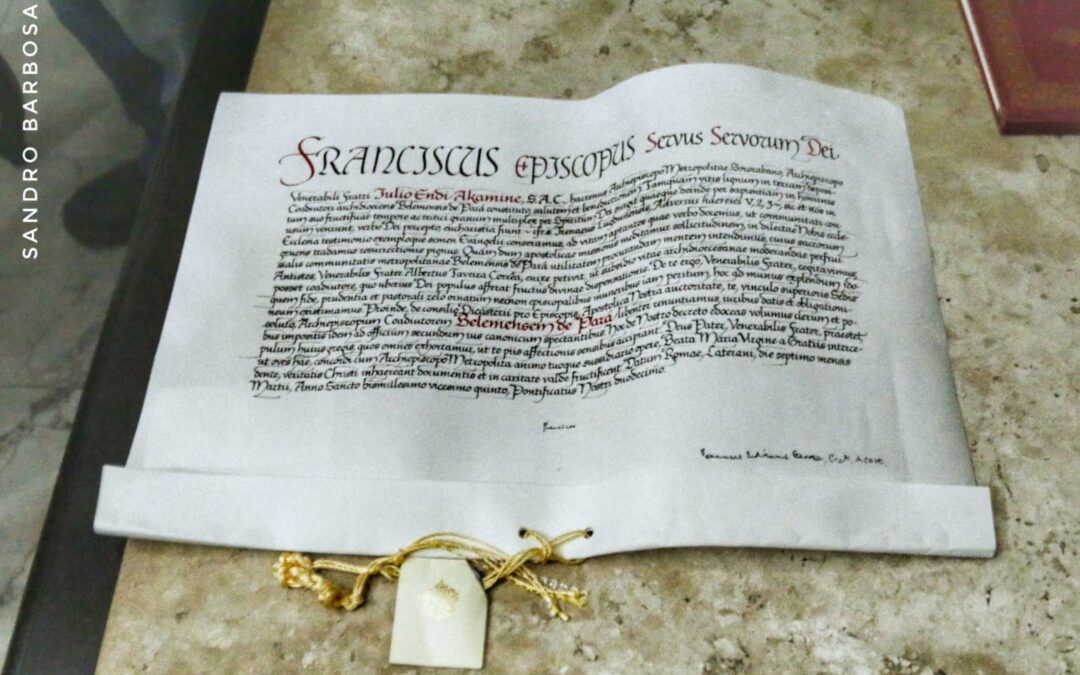 SANDRO BARBOSA
FRANCISCUS EPISCOPUS Servus Servorum Dei
Venerabili Fratri Julio Endi Akamine, S.A.C., hactenus Archiepiscopo Metropolitae Sorocabano, Archiepiscopo
Coadiutori archidioecesis Belemensis de Pará constituto, salutem et benedictionem. Tamquam vitis lignum in terram deposi
tum suo fructificat tempore ac tritici granum multiplex per Spiritum Dei surgit quaeque deinde per sapientiam in hominis
usum veniunt, verbo Dei percepto eucharistia fiunt - cfr S. Irenaeus Lugdunensis, Adversus haereses V, 2, 3 -, sic et nos in
Ecclesia testimonio exemploque semen Evangelii conseramus, ad vitam aptantes quae verbo docemus, ut communitati con
gruene tradamus resurrectionis pignus. Quam dum apostolicae muneris meditamus sollicitudinem, in dilectae Nobis eccle
sialis communitatis metropolitanae Belemensis de Pará utilitatem procurandam mentem intendimus, cuius sacrorum
Antistes, Venerabilis Frater Albertus Taveira Corrêa, enixe petivit, ut subsidio vitae archidioecesanae moderandae perfrui
posset coadiutore, quo uberius Dei populus afferat fructus divinae dispensationis. De te ergo, Venerabilis Frater, cogitavimus,
quem fide, prudentia et pastorali zelo ornatum necnon episcopalibus muneribus iam peritum, hoc ad munus explendum ido
neum existimamus. Proinde, de consilio Dicasterii pro Episcopis, Apostolica Nostra auctoritate, te, vinculo superioris Sedis
soluto, Archiepiscopum Coadiutorem Belemensem de Pará libenter renuntiamus, iuribus datis et obligationi
bus impositis idem ad officium secundum ius canonicum spectantibus. Hoc de Nostro decreto edoceas volumus clerum et po
pulum huius gregis, quos omnes exhortamur, ut te piis affectionis sensibus accipiant. Deus Pater, Venerabilis Frater, praestet,
ut oves hae, concordi cum Archiepiscopo Metropolita animo tuoque suasdiario opere, Beata Maria Virgine a Gratiis interce
dente, veritatis Christi inhaereant documentis et in caritate valde fructificent. Datum Romae, Laterani, die septimo mensis
Martii, Anno Sancto bismillesimo vicesimo quinto, Pontificatus Nostri duodecimo.
Franciscus